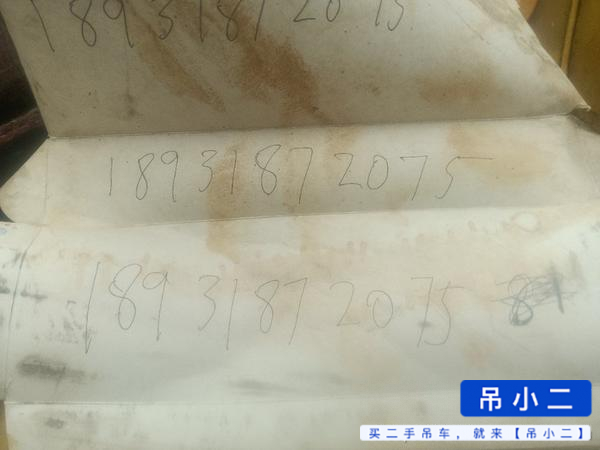 18931872075
18931872075
18931872075
吊小二
买二手吊车，就来【吊小二】